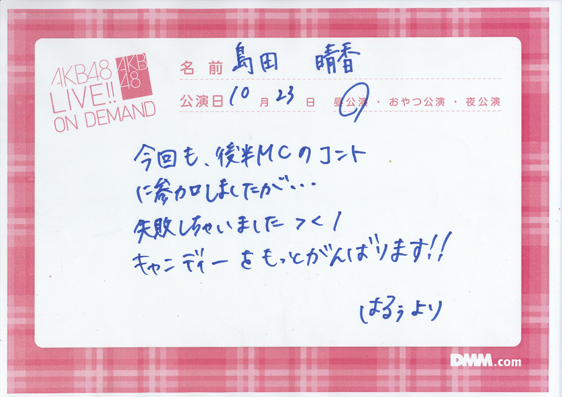 AKB48
LIVE!!
ON DEMAND
AKB
48
名前 島田 晴香
公演日 10月23日 昼公演・おやつ公演・夜公演
今回も、後半MCのコント
に参加しましたが・・・
失敗しちゃいました＞＜！
キャンディーをもっとがんばります!!
はるぅより
DMM.com